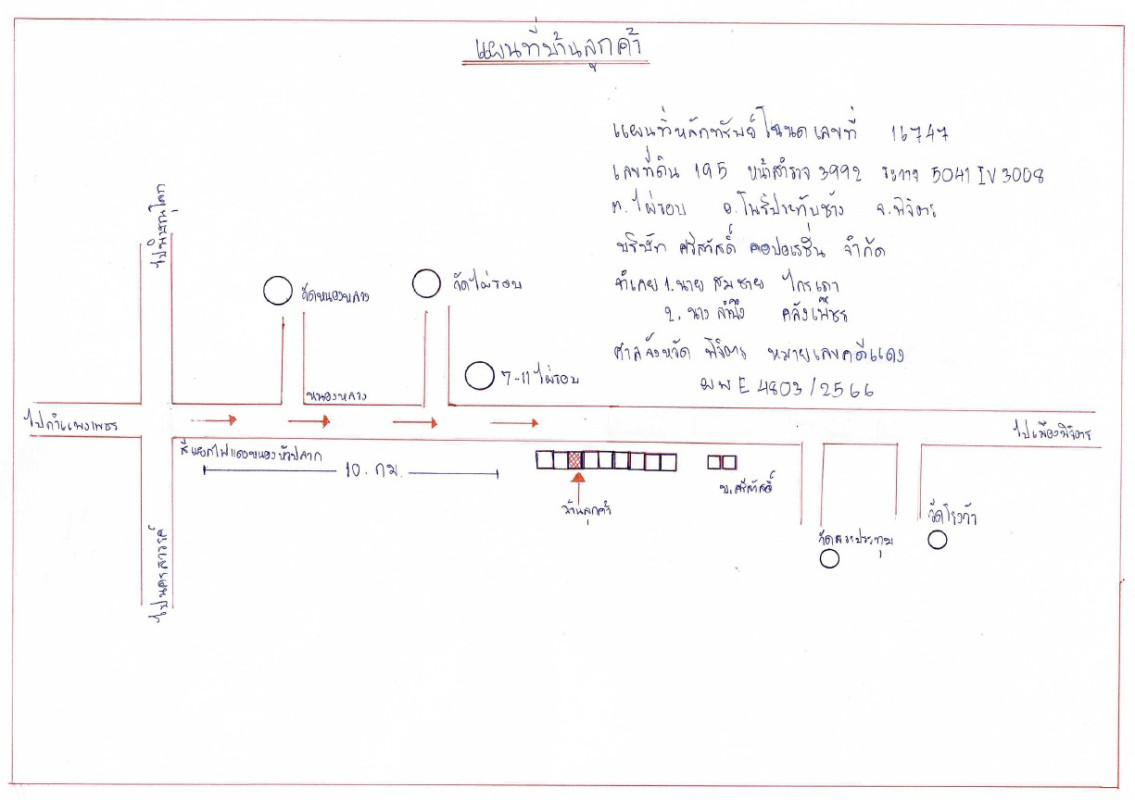 แผนที่บ้านลูกค้า
แผนที่หลักทรัพย์โฉนดเลขที่ 16747
เลขที่ดิน 195 หน้าสำรวจ 3992 ระวาง 5041 IV 3008
ต.ไผ่รอบ อ.โพธิ์ประทับช้าง จ.พิจิตร
บริษัท ศรีสวัสดิ์ คอปอเรชั่น จำกัด
จำเลย 1.นาย สมชาย ไกรเดา
2. นาง ลำพึง คลังเพ็ชร
ศาลจังหวัด พิจิตร หมายเลขคดีแดง
ผบ E 4803/2566
ไปพิษณุโลก
วัดหนองหลวง
วัดไผ่รอบ
7-11 ไผ่รอบ
หนองหลวง
ไปกำแพงเพชร
ไปเมืองพิจิตร
สี่แยกไฟแดงหนองหัวปลวก
10. กม.
บ้านลูกค้า
บ.ศรีสวัสดิ์
วัดสระประทุม
วัดโรงว้า
ไปนครสวรรค์